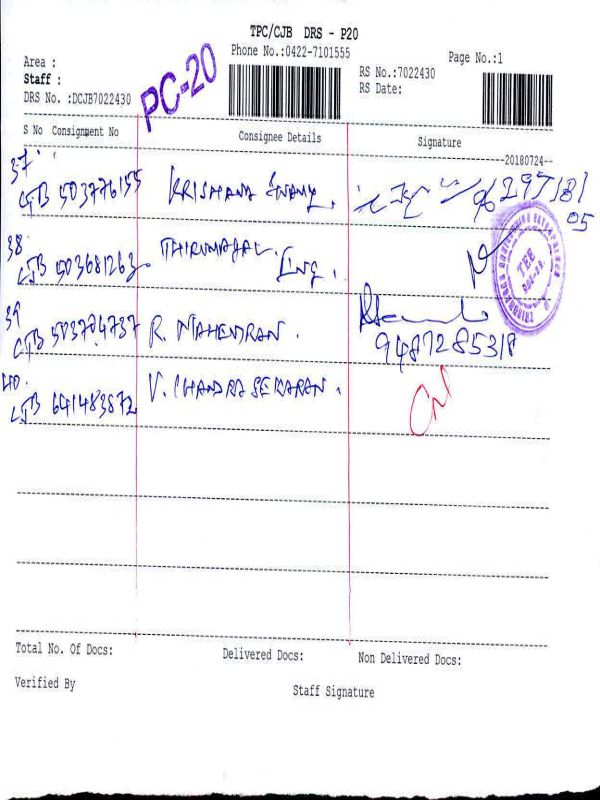 TPC/CJB DRS - P20
Phone No.:0422-7101555
Page No.:1
Area :
Staff :
DRS No. :DCJB7022430
PC-20
RS No.:7022430
RS Date:
S No Consignment No
Consignee Details
Signature
20180724
37
CJB 503776155
KRISHANA SWAMY.
38
CJB 503681263
THIRUMAGAL Eng.
TEE
39
CJB 503704737
R. MAHENDRAN.
9487285318
40.
CJB 641483872
V. CHANDRA SEKARAN.
Total No. Of Docs:
Delivered Docs:
Non Delivered Docs:
Verified By
Staff Signature